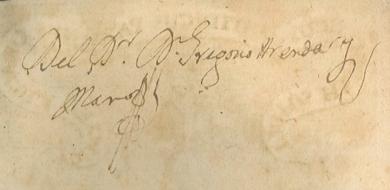 Del Dr. Dn. Gregorio Arenda y